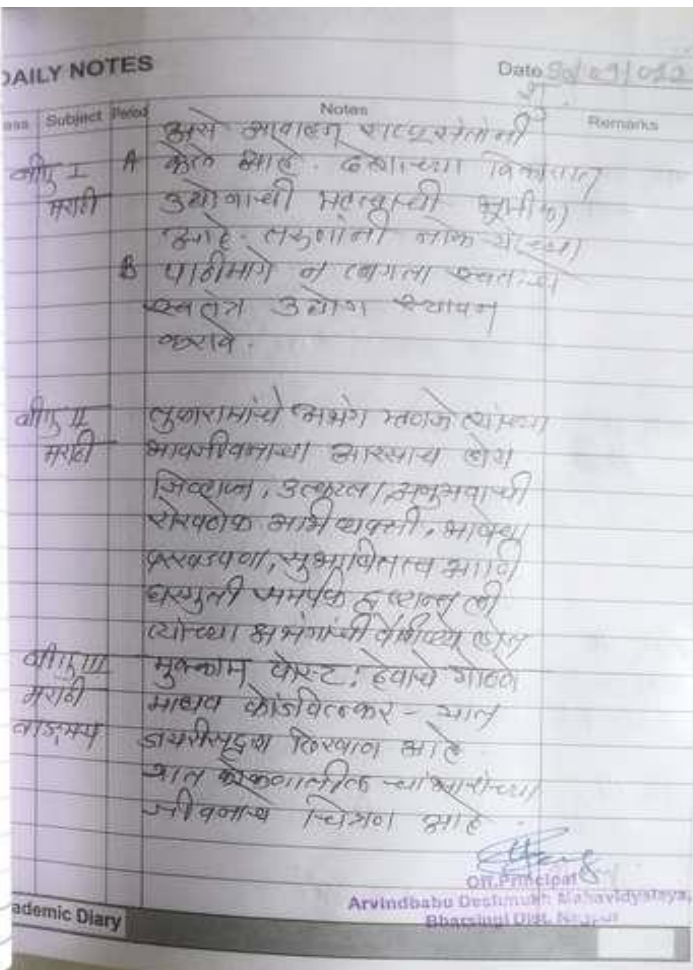 DAILY NOTES
Date
Subject Period Notes Remarks
असे आवाहन राष्ट्रसंतांनी
बीए I A केले आहे. देशाच्या विकासात
मराठी उद्योगाची महत्त्वाची भूमीका
आहे. तरुणांनी नोकऱ्यांच्या
B पाठीमागे न लागता स्वतःचा
स्वतंत्र उद्योग स्थापन
करावे.
बीए II तुकारामांचे अभंग म्हणजे त्यांच्या
मराठी भावजीवनाचा आरसाच होय
जिव्हाळा, उत्कटता, अनुभवाची
रोखठोक अभिव्यक्ती, भाषेचा
परखडपणा, सुभाषितत्व आणि
घरगुती समर्पक दृष्टान्त ही
त्यांच्या अभंगांची वैशिष्ट्ये होत
बीए III मुक्काम पोस्ट : देवाचे गोठणे
मराठी माधव कोंडविलकर - यात
वाङ्मय डायरीसदृश लिखाण आहे
यात कोकणातील चांभारांच्या
जीवनाचे चित्रण आहे.
Off.Principal
Arvindbabu Deshmukh Mahavidyalaya,
Bharsingi Dist. Nagpur
ademic Diary